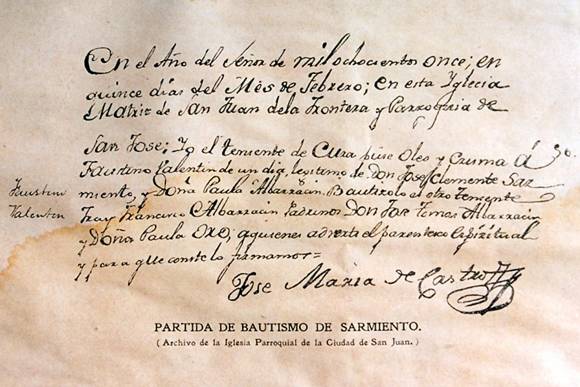 En el Año del Señor de mil ochocientos once; en
quince dias del Mes de Febrero; en esta Yglecia
Matriz de San Juan dela Frontera y Parroqueria de
San Jose; Yo el teniente de Cura puse Oleo y Crisma á
Faustino Valentin de un dia, legitimo de Don Jose Clemente Sar
miento, y Doña Paula Albarracin. Bautizolo el otro teniente
Fray Francisco Albarracin Padrinos Don Jose Tomas Albarracin
y Doña Paula Oro; aquienes adverti el parentesco Espiritual
y para que conste lo firmamos=
Jose Maria de Castro
Faustino
Valentin
30.
PARTIDA DE BAUTISMO DE SARMIENTO.
( Archivo de la Iglesia Parroquial de la Ciudad de San Juan. )